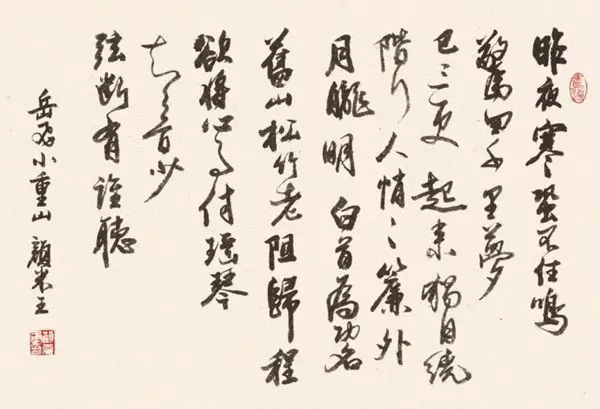 昨夜寒蛩不住鳴
驚回千里夢
已三更 起來獨自繞
階行 人悄々 簾外
月朧明 白首為功名
舊山松竹老 阻歸程
欲將心事付瑤琴
知音少
弦斷有誰聽
岳飛小重山